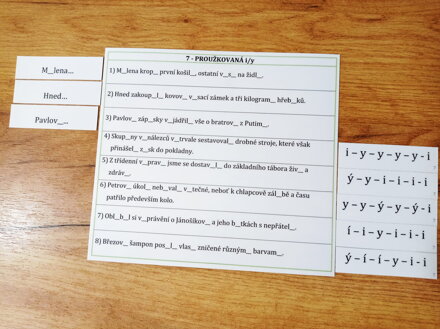 7 - PROUŽKOVANÁ i/y
M__lena...
Hned...
Pavlov__...
1) M__lena krop__ první košil__, ostatní v__s__ na židl__.
2) Hned zakoup__l__ kovov__ v__sací zámek a tři kilogram__ hřeb__ků.
3) Pavlov__ záp__sky v__jádřil__ vše o bratrov__ z Putim__.
4) Skup__ny v__nálezců v__trvale sestavoval__ drobné stroje, které však
přinášel__ z__sk do pokladny.
5) Z třídenní v__prav__ jsme se dostav__l__ do základního tábora živ__ a
zdráv__.
6) Petrov__ úkol__ neb__val__ v__tečné, neboť k chlapcově zál__bě a času
patřilo především kolo.
7) Obl__b__l si v__právění o Jánošíkov__ a jeho b__tkách s nepřátel__.
8) Březov__ šampon pos__l__ vlas__ zničené různým__ barvam__.
i – y – y – y – y - i
ý – y – i – i – i - i
y – y – ý – y – y - i
í – i – y – i – i
ý – í – í – y – i - i